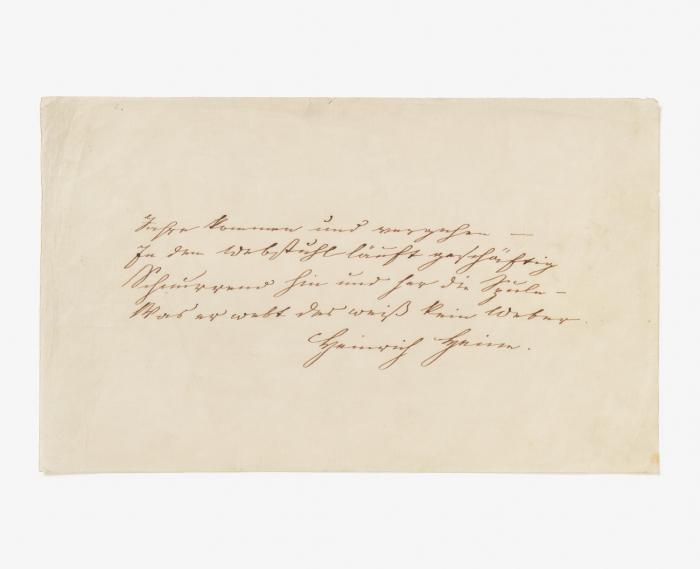 Jahre kommen und vergehen —
In dem Webstuhl läuft geschäftig
Schnurrend hin und her die Spule –
Was er webt das weiß kein Weber.
Heinrich Heine.